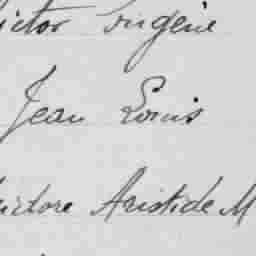 ictor Eugène
Jean Louis
Aristide M